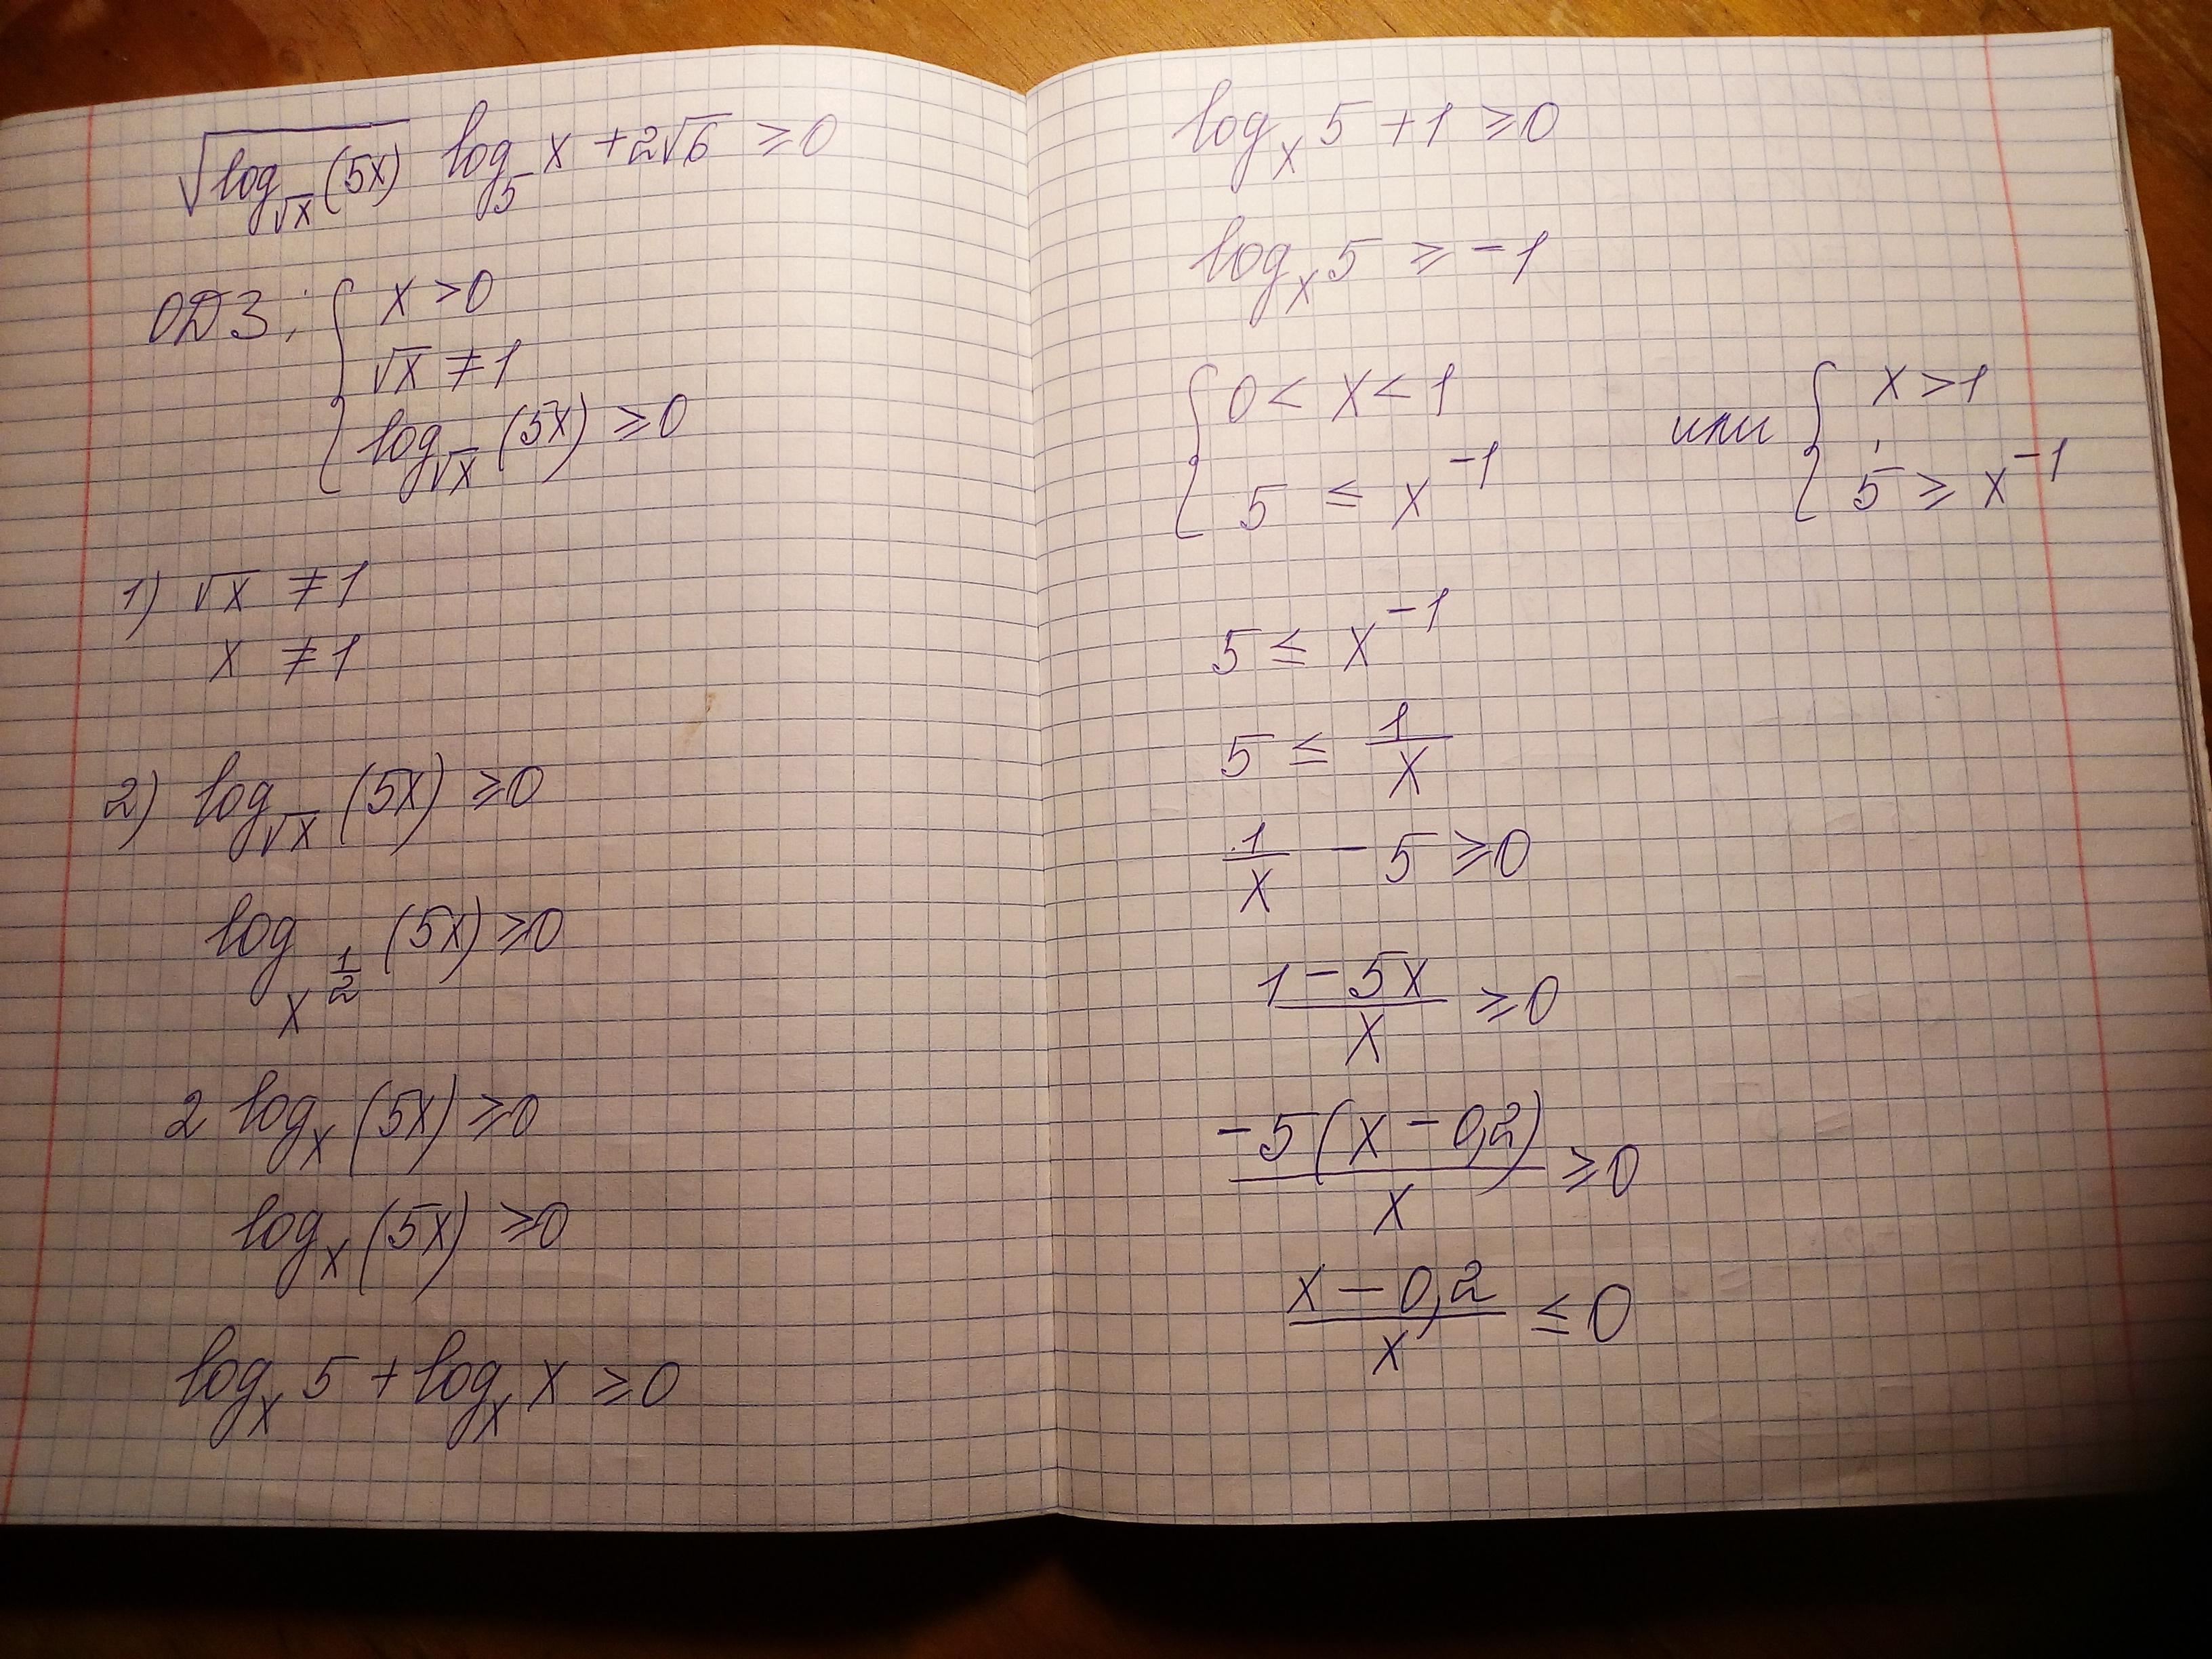 √log_√x (5x) log_5 x + 2√6 ≥ 0
ОДЗ: { x > 0
√x ≠ 1
log_√x (5x) ≥ 0
1) √x ≠ 1
x ≠ 1
2) log_√x (5x) ≥ 0
log_x^(1/2) (5x) ≥ 0
2 log_x (5x) ≥ 0
log_x (5x) ≥ 0
log_x 5 + log_x x ≥ 0
log_x 5 + 1 ≥ 0
log_x 5 ≥ -1
{ 0 < x < 1 или { x > 1
5 ≤ x^-1 5 ≥ x^-1
5 ≤ x^-1
5 ≤ 1/x
1/x - 5 ≥ 0
(1 - 5x)/x ≥ 0
-5(x - 0,2)/x ≥ 0
(x - 0,2)/x ≤ 0